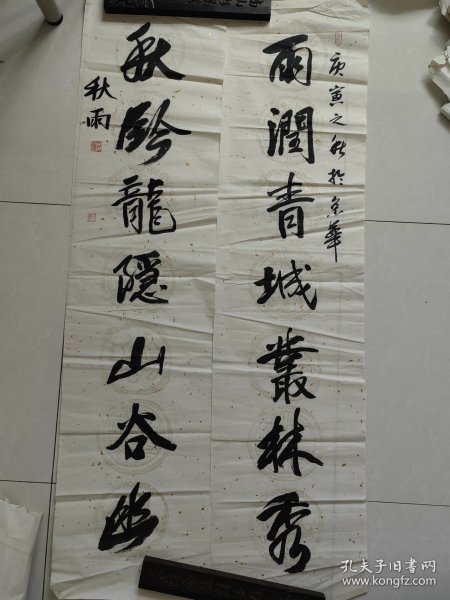 庚寅之秋於金華
雨潤青城叢林秀
秋龍隱山谷幽
秋雨
孔夫子旧书网
www.kongfz.com